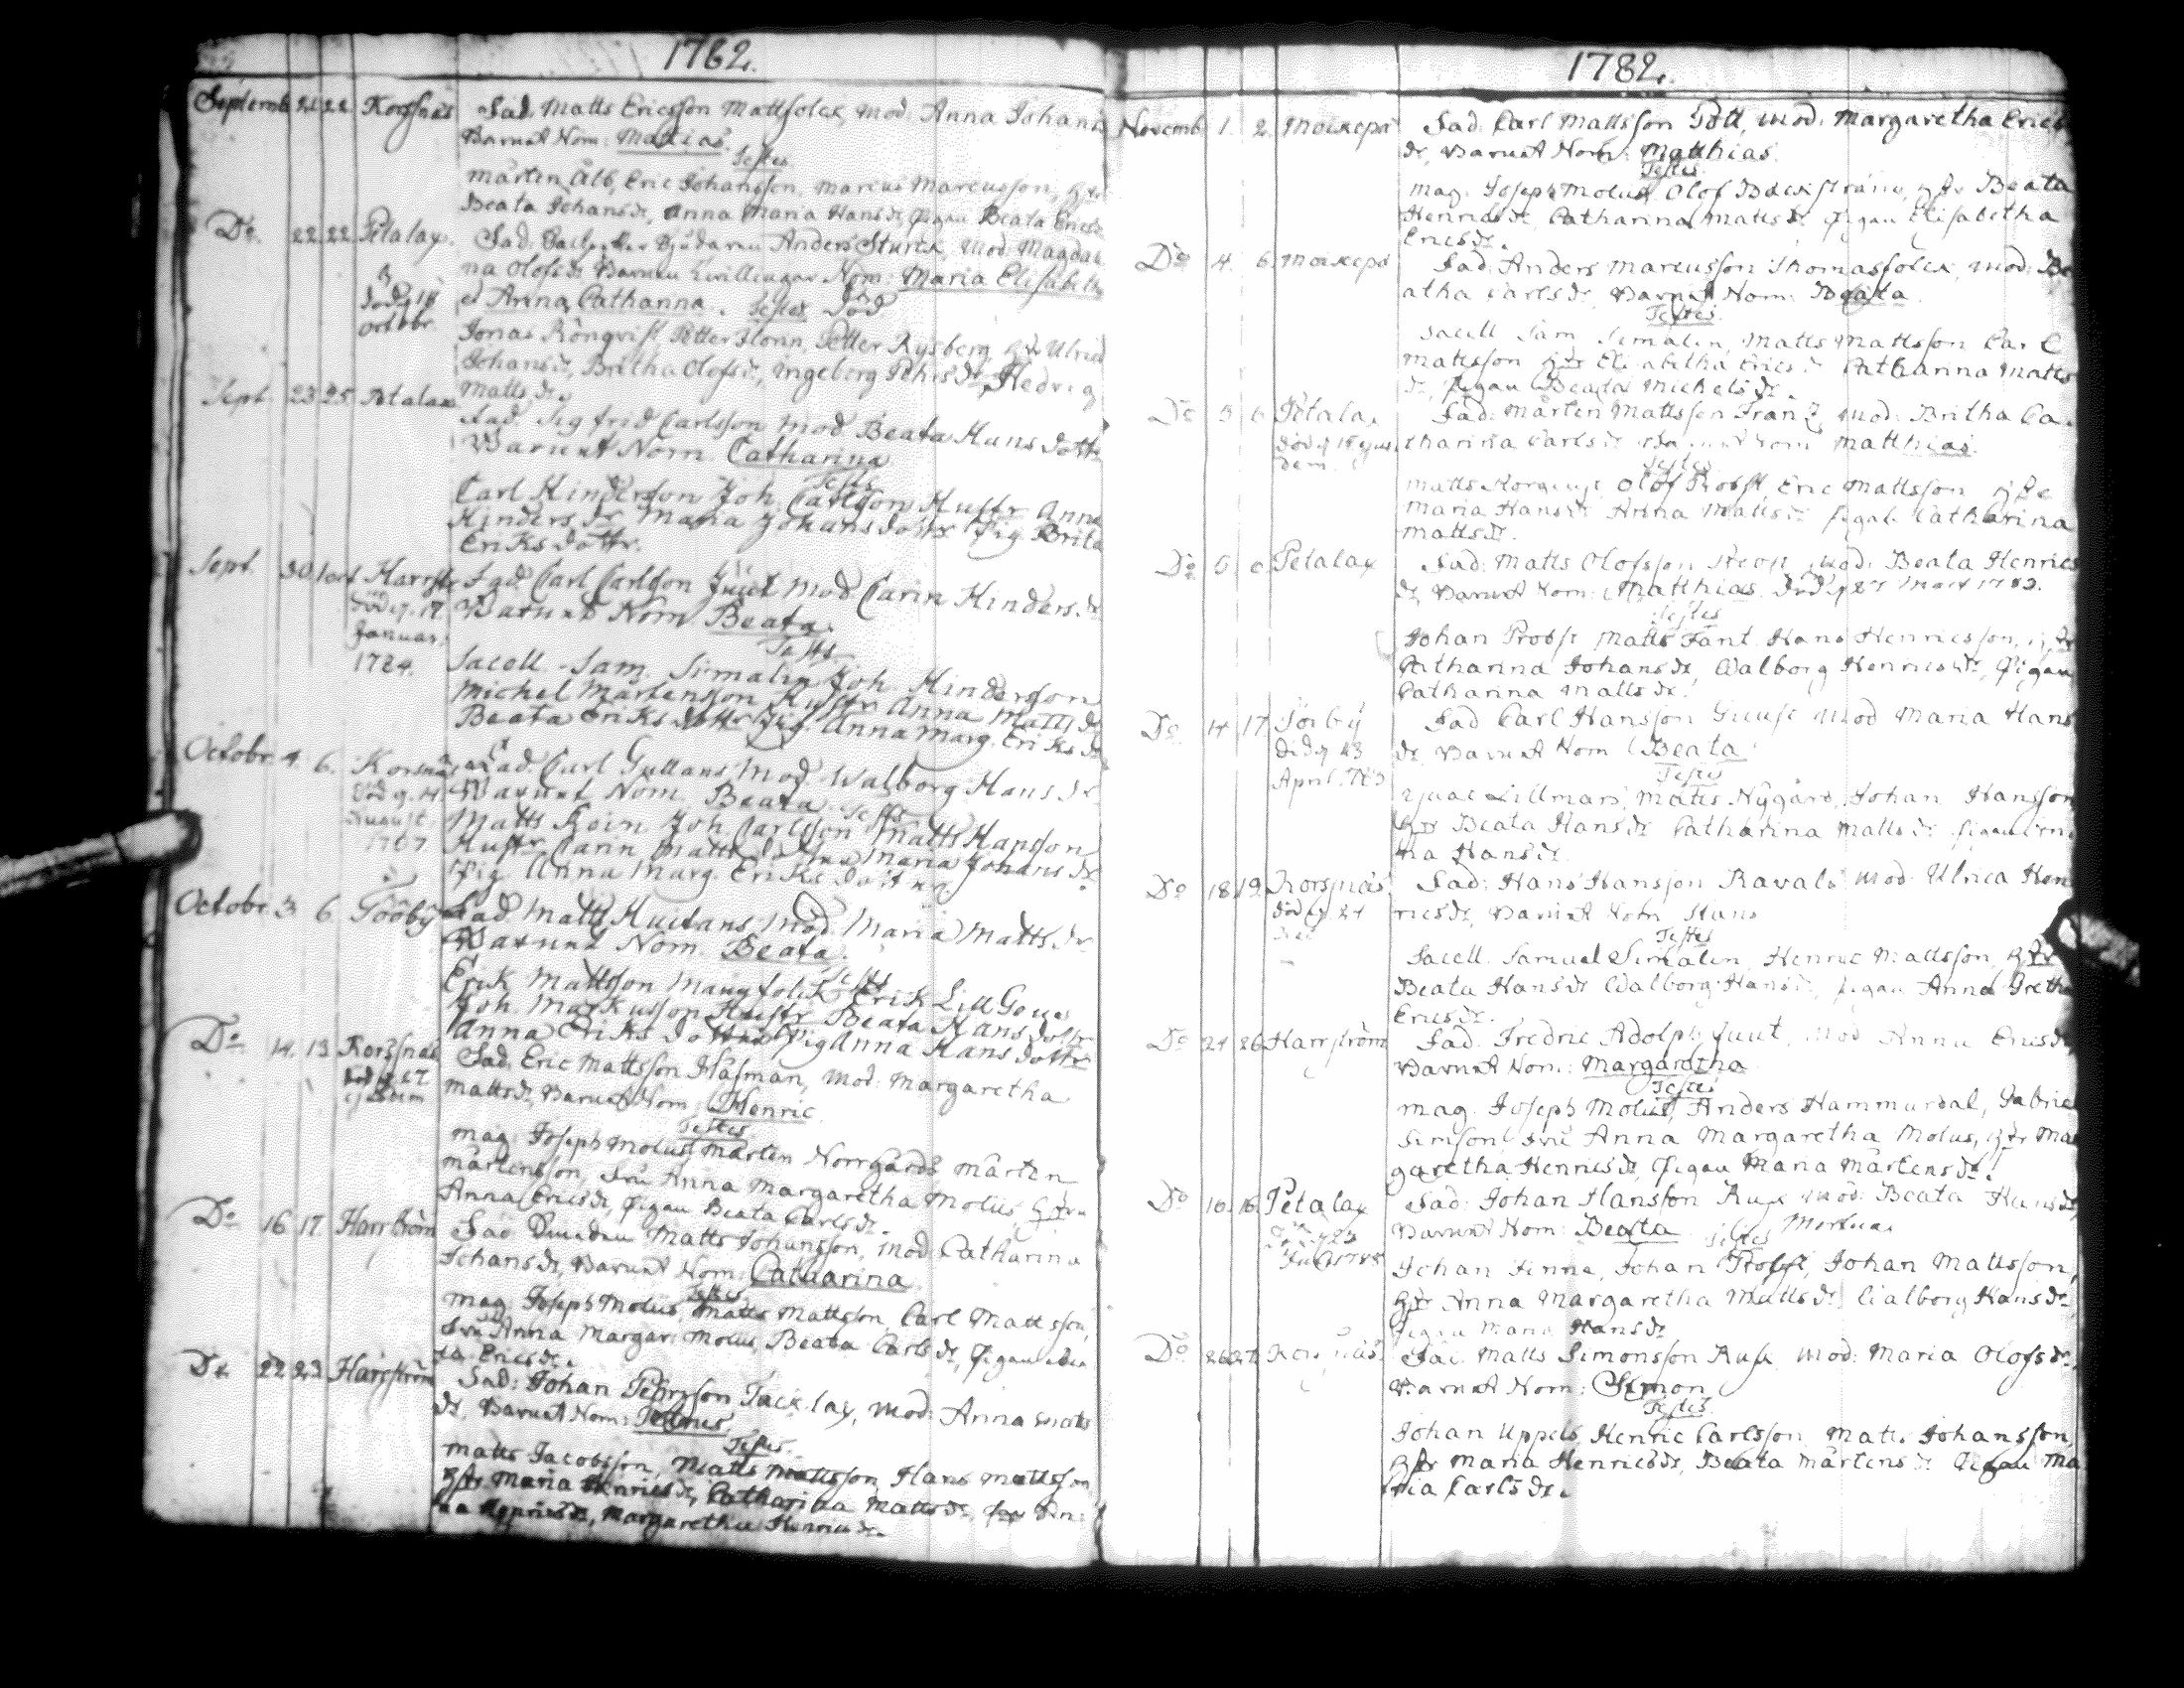 1762.
Septemb. 21 22 Korsnäs Fad. Matts Ericsson Mattfolck, Mod. Anna Johans
Barnet Nom: Mathias.
Testes.
Mårten Ålb, Eric Johansson, Marcus Marcusson, h:tr
Beata Johans dr, Anna Maria Hans dr, Pigan Beata Erics
Do. 22 22 Petalax. Fad. Anders Sturck, Mod. Magdale
na Olofs dr Barnen Tvillingar Nom: Maria Elisabeth
död 18 octobr. et Anna Catharina. Testes. död
Jonas Rönqvist, Petter Holm, Petter Rysberg, h:tr Ulrica
Johans dr, Britha Olofs dr, Ingeborg Johs dr, Hedvig
Matts dr.
Sept. 23 25 Petalax Fad. Sigfrid Carlsson Mod. Beata Hans dottr
Barnet Nom. Catharina
Testes
Carl Hindersson Joh. Carlsson Hustr. Anna
Hinders dr Maria Johans dottr Pig. Brita
Eriks dottr.
Sept. 30 1 oct Harrstr Fad. Carl Carlsson Juut Mod Carin Hinders dr
död 17 Januar. 1784. Barnet Nom Beata.
Testes
Sacell. Sam. Simalin Joh. Hindersson
Michel Mårtensson Hustr Anna Matts dr
Beata Eriks dottr Pig. Anna Marg. Eriks dr
Octobr. 4 6. Korsnäs Fad. Carl Gullans Mod. Walborg Hans dr
död August Barnet Nom. Beata. Testes
Matts Rein Joh. Carlsson Matts Hansson
Hustr. Carin Matts Maria Johans dr
Pig Anna Marg. Eriks dottr
Octobr. 3 6. Tööby Fad. Matts Mod. Maria Matts dr
Barnet Nom. Beata.
Testes
Erik Mattsson Mangfolck Erik Lill
Joh. Markusson Hustr Beata Hans dottr
Anna Eriks dottr Pig Anna Hans dottr
Do. 14. 15 Korssnäs Fad. Eric Mattsson Håsman, Mod: Margaretha
död 27 ejusdem Matts dr, Barnet Nom Henric.
Testes
Mag. Joseph Molus, Mårten Norrgårds Mårten
Mårtensson, Fru Anna Margaretha Molus h:tr
Anna Erics dr, Pigan Beata Carls dr.
Do. 16 17 Harrström Fad Matts Johansson, Mod. Catharina
Johans dr, Barnet Nom: Catharina.
Testes
Mag. Joseph Molus, Matts Mattsson, Carl Mattsson,
Fru Anna Margar. Molus, Beata Carls dr, Pigan
Erics dr.
Do. 22 23 Harrström Fad: Johan Pehrsson Tacklax, Mod: Anna Matts
dr, Barnet Nom: Johannes.
Testes.
Matts Jacobsson, Matts Mattsson, Hans Mattsson
h:tr Maria Henrics dr, Catharina Matts dr,
na Henrics dr, Margaretha Henrics dr.
1782.
Novemb. 1. 2. Moikepä Fad. Carl Mattsson Pott, Mod: Margaretha Erics
dr, Barnet Nom: Matthias.
Testes.
Mag. Joseph Molus, Olof Båckstränd, h:tr Beata
Henrics dr. Catharina Matts dr. Pigan Elisabetha
Erics dr.
Do 4. 6. Moikepä Fad: Anders Marcusson Thomasfolck, Mod: Be
atha Carls dr, Barnet Nom: Beata.
Testes.
Sacell Sam. Simalin, Matts Mattsson Carl
Mattsson h:tr Elisabetha Erics dr Catharina Matts
dr, Pigan Beata Michels dr.
Do 5 6 Petalax Fad: Mårten Mattsson Frantz, Mod: Britha Ca
död 18 ejusdem. tharina Carls dr Barnet Nom Matthias.
Testes
Matts Olof Probst, Eric Mattsson, h:tr
Maria Hans dr Anna Matts dr Pigan Catharina
Matts dr.
Do. 5. 6 Petalax Fad: Matts Olofsson Mod: Beata Henrics
dr, Barnet Nom: Matthias. Död 27 Mart 1783.
Testes
Johan Probst Matts Fant. Hans Henricsson, h:tr
Catharina Johans dr, Walborg Henrics dr, Pigan
Catharina Matts dr.
Do. 14 17 Töjby Fad Carl Hansson Mod Maria Hans
död 23 April. 783 dr Barnet Nom Beata
Testes
Lillmars, Matts Nygård, Johan Hansson
h:tr Beata Hans dr Catharina Matts dr Pigan
na Hans dr.
Do 18 19. Korsnäs Fad: Hans Hansson Ravals Mod Ulrica Hen
död 24 rics dr, Barnet Nom Hans
Testes
Sacell. Samuel Simalin, Henric Mattsson, h:tr
Beata Hans dr Walborg Hans dr, Pigan Anna Greta
Erics dr.
Do 24 26 Harrström Fad. Fredric Adolph Juut, Mod Anna Erics dr
Barnet Nom: Margaretha
Testes
Mag. Joseph Molus, Anders Hammardal, Gabriel
Simson Fru Anna Margaretha Molus, h:tr Mar
garetha Henrics dr, Pigan Maria Mårtens dr.
Do 16. 16. Petalax Fad: Johan Hansson Mod: Beata Hans dr
Barnet Nom: Beata Testes Mortua
Johan Finne, Johan Probst, Johan Mattsson,
h:tr Anna Margaretha Matts dr, Walborg Hans dr
Pigan Maria Hans dr
Do 26 27. Korsnäs Fad. Matts Simonsson Mod: Maria Olofs dr.
Barnet Nom: Simon
Testes.
Johan Uppels, Henric Carlsson Matts Johansson,
h:tr Maria Henrics dr, Beata Mårtens dr Pigan Ma
ria Carls dr.